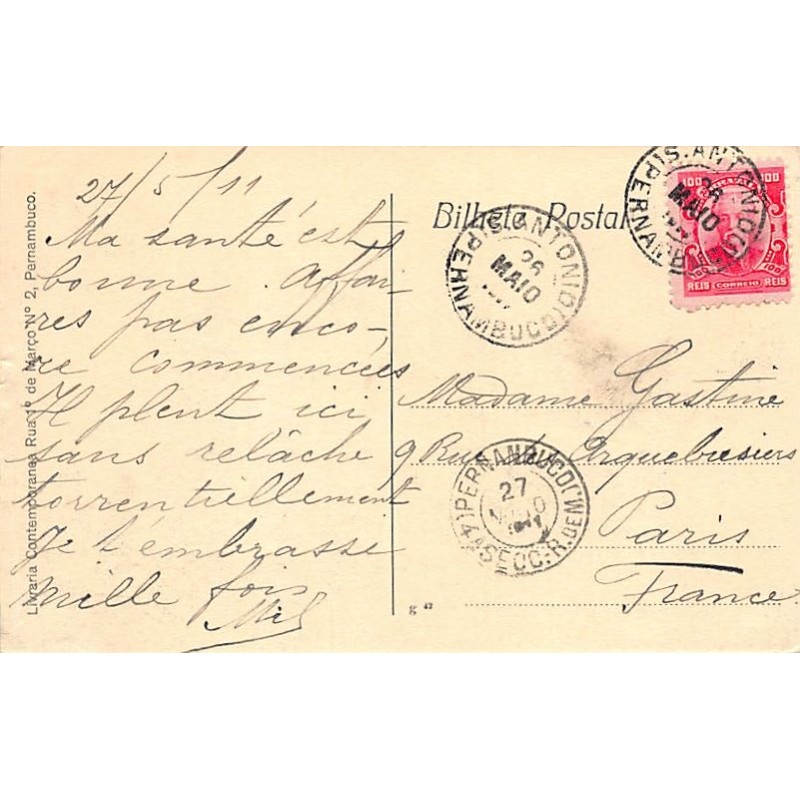 Livraria Contemporanea Rua 1º de Março Nº 2, Pernambuco.
27/5/11
Ma santé est
bonne. Affai-
res pas enco-
re commencées
Il pleut ici
sans relâche
torrentiellement
Je t'embrasse
mille fois
Bilhete Postal
S. ANTONIO
(PERNAMBUCO)
26
MAIO
S. ANTONIO
(PERNAMB
26
MAIO
100 100
100 100
REIS CORREIO REIS
Madame Gastine
9 Rue des Arquebusiers
Paris
France
PERNAMBUCO
27
1911
4ª SECC.
g 42